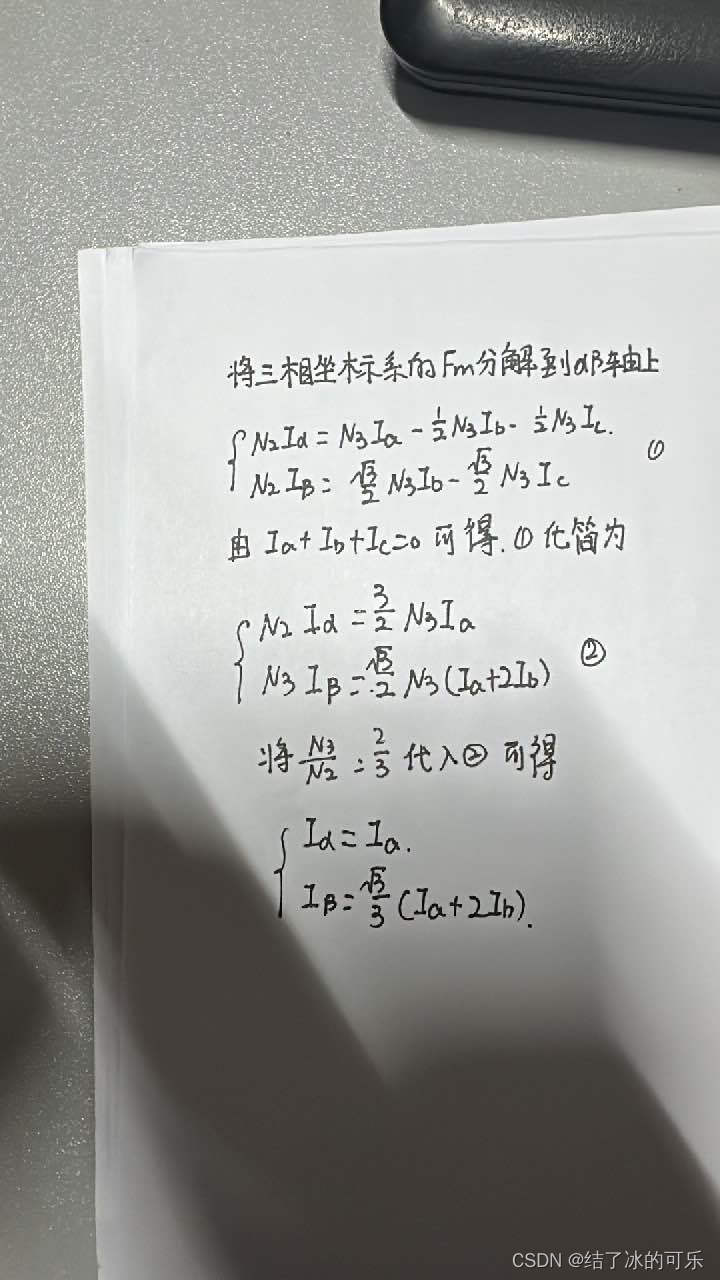 将三相坐标系的Fm分解到αβ轴上
N2Iα = N3Ia - 1/2 N3Ib - 1/2 N3Ic. ①
N2Iβ = √3/2 N3Ib - √3/2 N3Ic
由 Ia+Ib+Ic=0 可得. ①化简为
N2 Iα = 3/2 N3Ia ②
N3 Iβ = √3/2 N3(Ia+2Ib)
将 N3/N2 = 2/3 代入② 可得
Iα = Ia.
Iβ = √3/3 (Ia+2Ib).
CSDN @结了冰的可乐